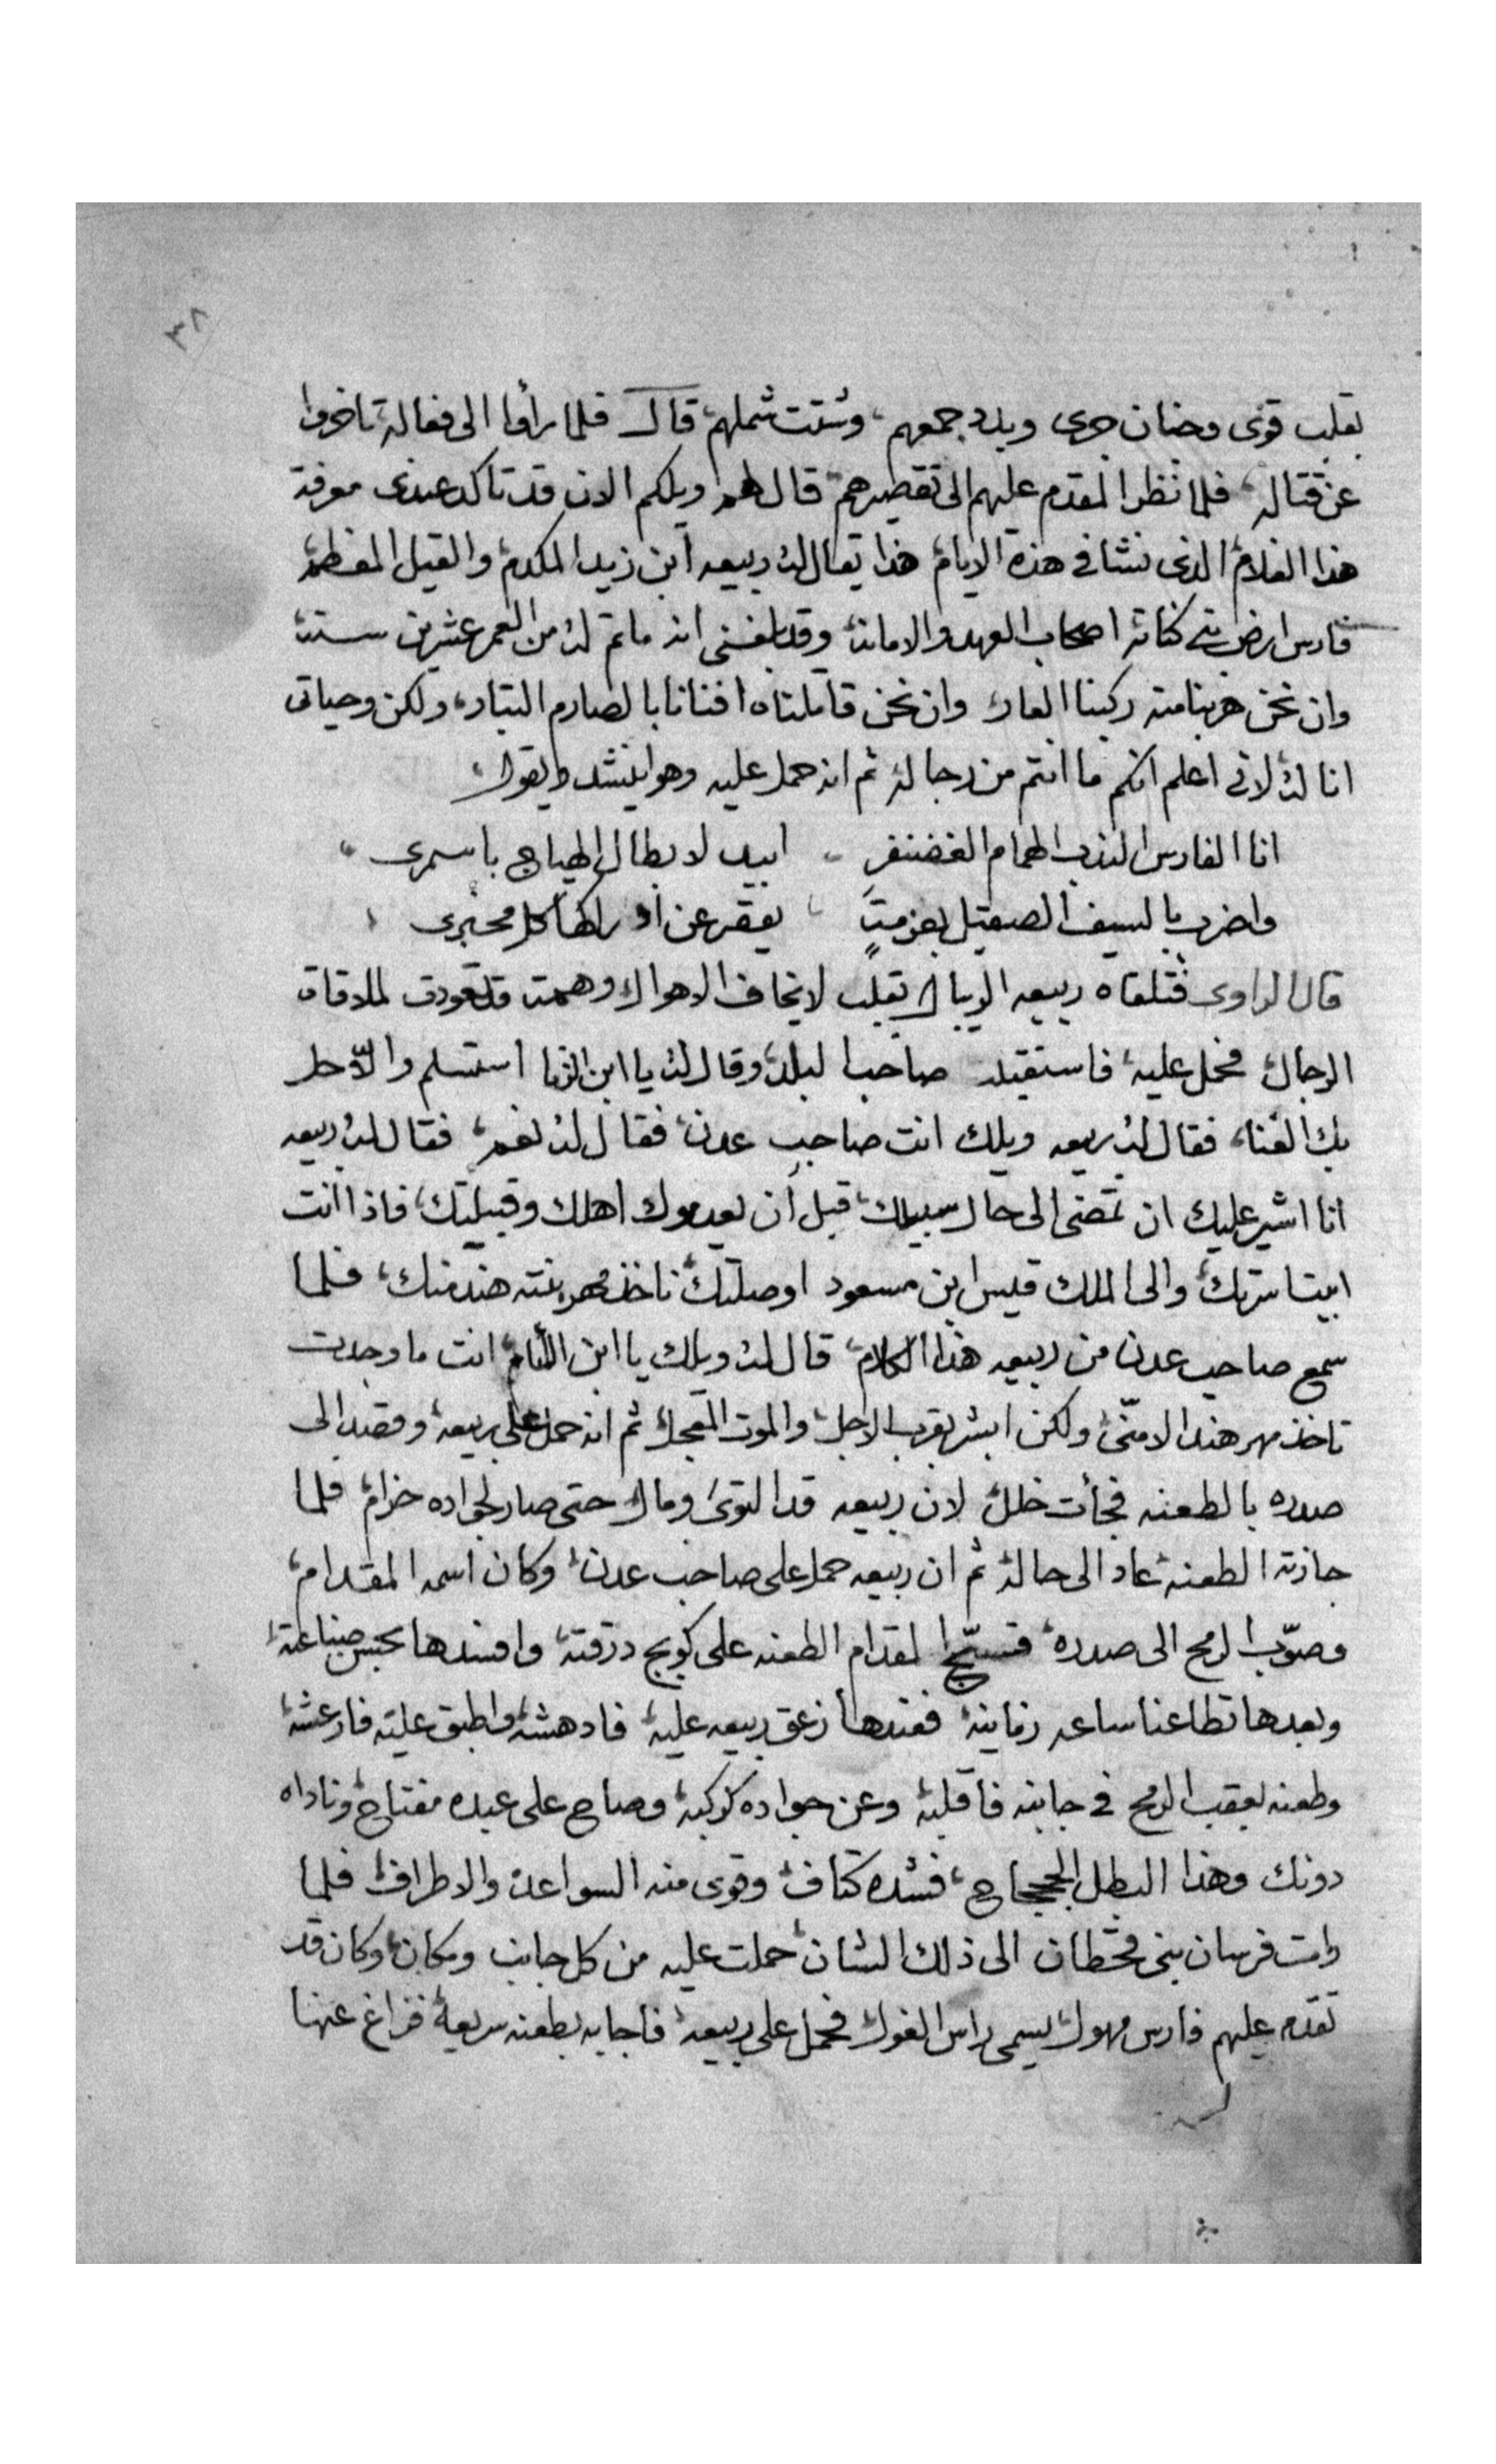 ٣٨
بقلب قوى وجنان جرى وبدد جمعهم، وشتت شملهم، قال فلما رأوا الى فعاله تاخروا
عن قتاله، فلما نظر المقدم عليهم الى تقصيرهم قال لهم ويلكم الان قد تاكد عندى معرفة
هذا الغلام الذى نشا فى هذه الايام هذا يقال له ربيعه ابن زيد المكدم والقيل المعظم
فارس ارض بنى كنانه اصحاب العهد والامانه وقد بلغنى انه ما تم له من العمر عشرين سنه
وان نحن هربنا منه ركبنا العار وان نحن قاتلناه افنانا بالصارم البتار، ولكن وحياتى
انا له لانى اعلم انكم ما انتم من رجاله ثم انه حمل عليه وهو ينشد ويقول،
انا الفارس الندب الهمام الغضنفر ابيد لابطال الهياج باسمرى
واضرب بالسيف الصقيل بعزمةٍ يقصر عن ادراكها كل مجبرى
قال الراوى فتلقاه ربيعه الريبال بقلب لا يخاف الاهوال وهمه قد تعودت لملاقاة
الرجال فحمل عليه فاستقبله صاحب البلد وقال له يا ابن الزنا استسلم والّا حل
بك الفنا، فقال له ربيعه ويلك انت صاحب عدن، فقال له نعم، فقال له ربيعه
انا اشير عليك ان تمضى الى حال سبيلك، قبل ان يعدموك اهلك وقبيلتك، فاذا انت
ابيت اسرتك والى الملك قيس ابن مسعود اوصلتك ناخذ مهر بنته هند منك، فلما
سمع صاحب عدن من ربيعه هذا الكلام، قال له ويلك يا ابن اللئام انت ما وجدت
تاخذ مهر هند الا منّى ولكن ابشر بقرب الاجل والموت المعجل ثم انه حمل على ربيعه وقصد الى
صدره بالطعنه فجأت خلل لان ربيعه قد التوى ومال حتى صار لجواده حزام فلما
جازته الطعنه عاد الى حاله ثم ان ربيعه حمل على صاحب عدن وكان اسمه المقدام،
وصوّب الرمح الى صدره المقدام الطعنه على كوبج درقته وافسدها بحسن صناعته
وبعدها تطاعنا ساعه زمانيه فعندها زعق ربيعه عليه فادهشه واطبق عليه فارعشه
وطعنه بعقب الرمح فى جانبه فاقلبه وعن جواده كركبه وصاح على عبده مفتاح وناداه
دونك وهذا البطل الجحجاح، فشده كتاف وقوى منه السواعد والاطراف فلما
رات فرسان بنى قحطان الى ذلك الشان حملت عليه من كل جانب ومكان وكان قد
تقدم عليهم فارس مهول يسمى راس الغول فحمل على ربيعه فاجابه بطعنه سريعه فزاغ عنها